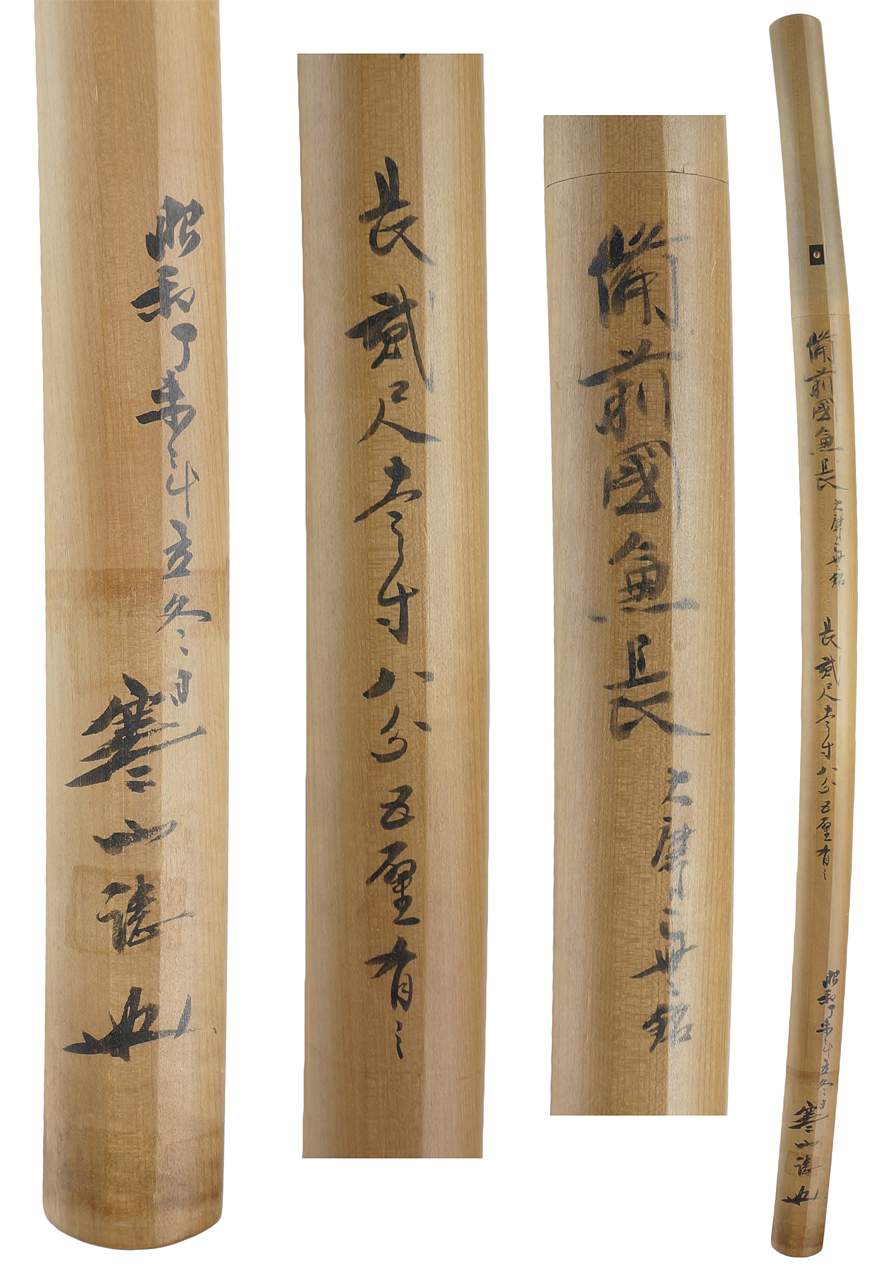 備前國兼長
大磨上無銘
長貳尺壹寸八分五厘有之
昭和丁未年立冬日
寒山誌
備前國兼長
大磨上無銘
長貳尺壹寸八分五厘有之
昭和丁未年立冬日
寒山誌